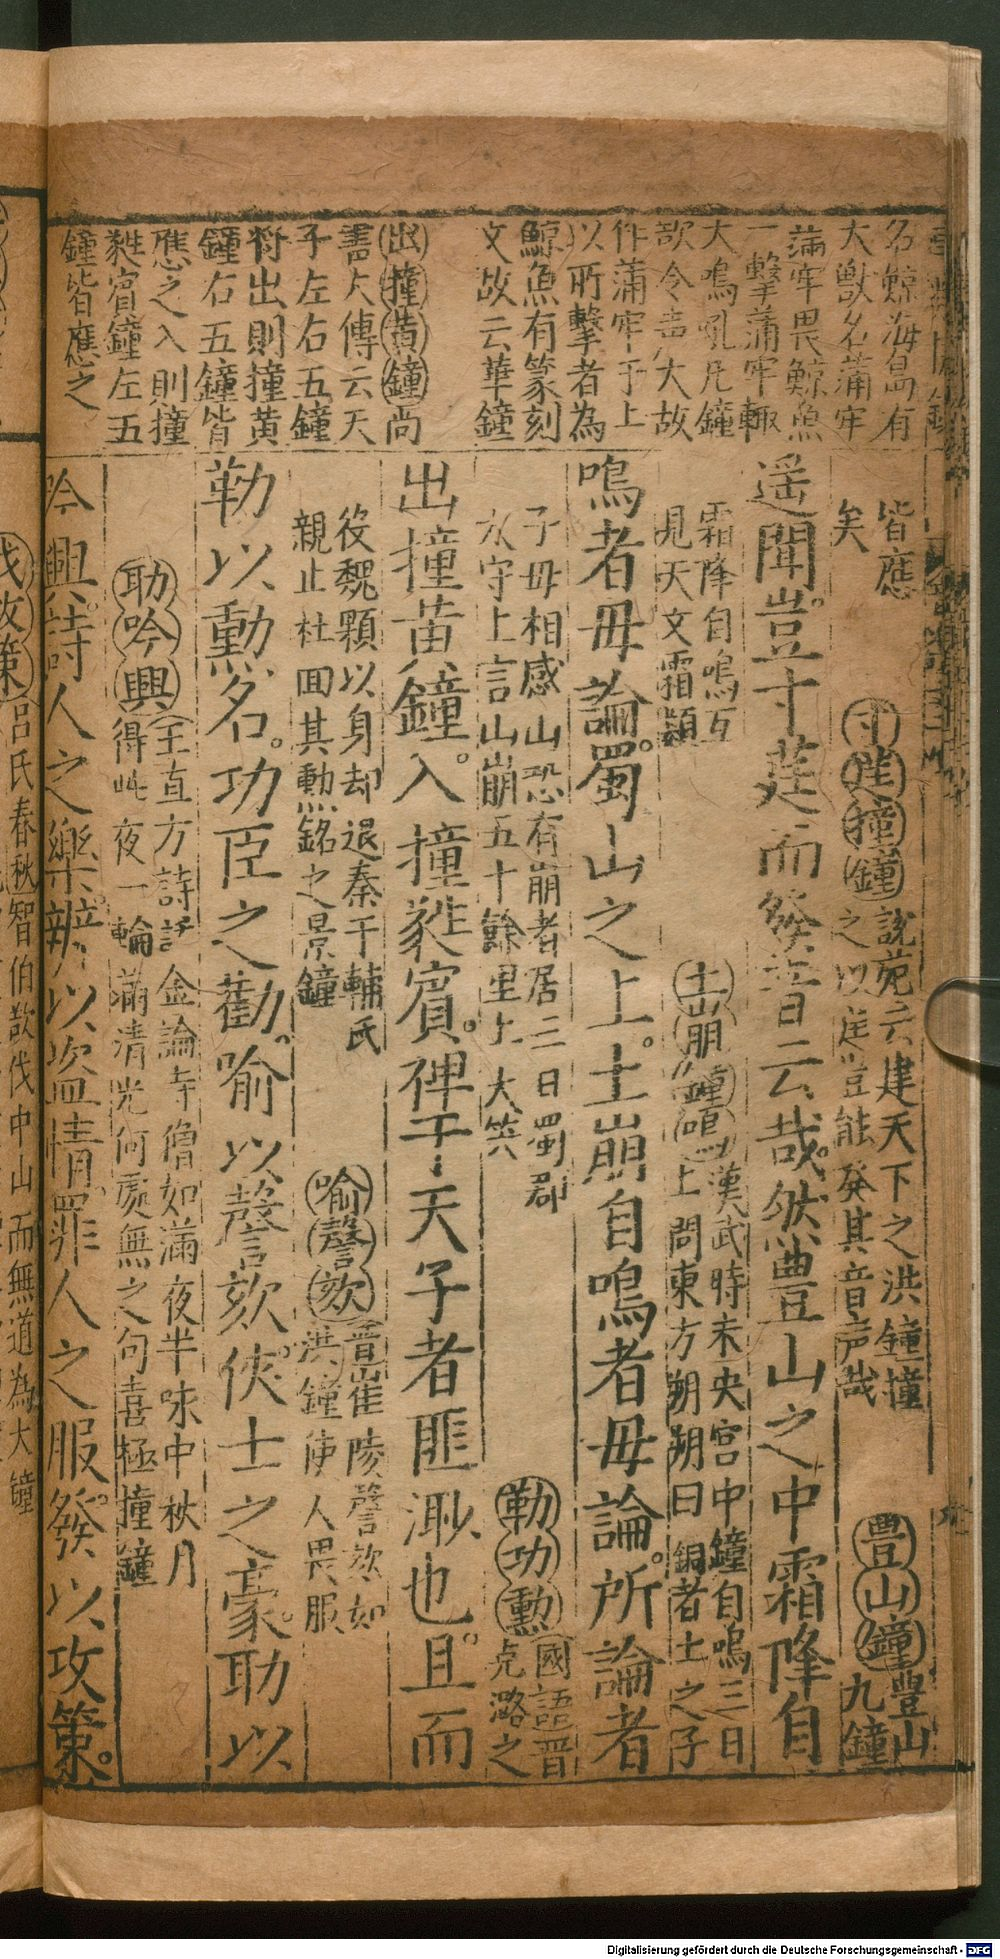 名鯨海島有
大獸名蒲牢
蒲牢畏鯨魚
一擊蒲牢輙
大鳴吼凡鐘
欲令音大故
作蒲牢于上
以所擊者為
鯨魚有篆刻
文故云華鐘
出撞黄鐘尚
書大傳云天
子左右五鐘
将出則撞黄
鐘右五鐘皆
應之入則撞
蕤賓鐘左五
鐘皆應之
皆應
矣
寸莛撞鐘說苑云建天下之洪鐘撞
之以莛豈能發其音声哉
豊山鐘豊山
九鐘
遥聞豈寸莛而發音云哉然豊山之中霜降自
霜降自鳴互
見天文霜類
土崩鐘鳴漢武時未央宫中鐘自鳴三日
上問東方朔朔曰銅者土之子
鳴者毋論蜀山之上土崩自鳴者毋論所論者
子母相感山恐有崩者居三日蜀郡
太守上言山崩五十餘里上大笑
勒功勳國語晋
克潞之
出撞黄鐘入撞蕤賓裨于天子者匪渺也且而
役魏顆以身却退秦于輔氏
親止杜回其勲銘之景鐘
喻謦欬晋崔陵謦欬如
洪鐘使人畏服
勒以勳名功臣之勸喻以謦欬俠士之豪助以
助吟興王直方詩話金論寺僧如滿夜半味中秋月
得此夜一輪滿清光何處無之句喜極撞鐘
吟興詩人之樂辨以盗情罪人之服發以攻策
伐攻策吕氏春秋智伯欲伐中山而無道為大鐘
Digitalisierung gefördert durch die Deutsche Forschungsgemeinschaft - DFG